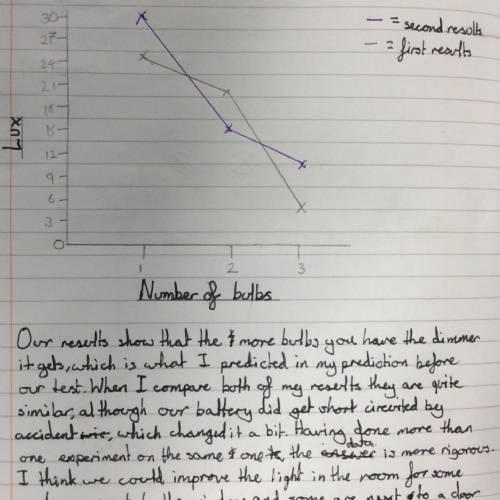 30
27
24
21
18
15
12
9
6
3
0
Lux
1 2 3
Number of bulbs
— = second results
— = first results
Our results show that the more bulbs you have the dimmer
it gets, which is what I predicted in my prediction before
our test. When I compare both of my results they are quite
similar, although our battery did get short circuited by
accident, which changed it a bit. Having done more than
one experiment on the same one, the data is more rigorous.
I think we could improve the light in the room for some
and some are next to a door